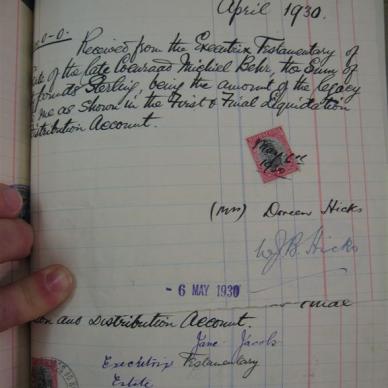 April 1930.
Received from the Executrix Testamentary of
of the late Coenraad Michiel Behr, the Sum of
Pounds Sterling, being the amount of the legacy
me as Shown in the First & Final Liquidation
Distribution Account.
(Mrs) Doreen Hicks
W J B. Hicks
- 6 MAY 1930
and Distribution Account.
Jane Jacobs
Executrix Testamentary
Estate